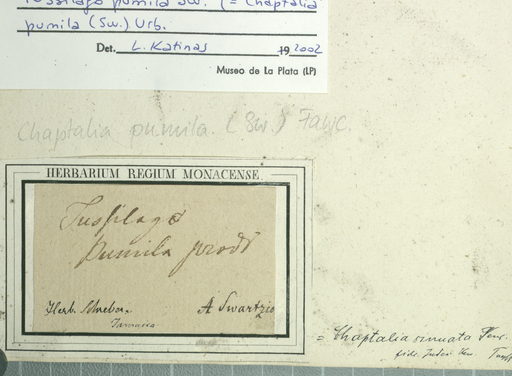 Tussilago pumila Sw. (= Chaptalia
pumila (Sw.) Urb.
Det. L. Katinas 19 2002
Museo de La Plata (LP)
Chaptalia pumila. (Sw.) Fawc.
HERBARIUM REGIUM MONACENSE
Tussilago
pumila prodr
Herb. Schreber. A Swartzio
Jamaica
= Chaptalia sinuata